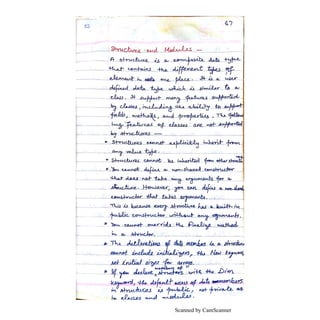 67
Structure and Modules —
A structure is a composite data type
that contains the different types of
element in one place. It is a user
defined data type which is similar to a
class. It support many features supported
by classes, including the ability to support
fields, methods, and properties. The follow
ing features of classes are not supported
by structures —
• Structures cannot explicitly inherit from
any value type.
• Structures cannot be inherited from other
• You cannot define a non-shared constructor
that does not take any arguments for a
structure. However, you can define a non-shared
constructor that takes arguments.
This is because every structure has a built-in
public constructor without any arguments.
• You cannot override the Finalize method
in a structor.
• The declarations of data member in a structure
cannot include initializers, the New keyword,
set initial sizes for arrays.
• If you declare with the Dim
keyword, the default access of
in structures is public, not private as
in classes and modules.
Scanned by CamScanner